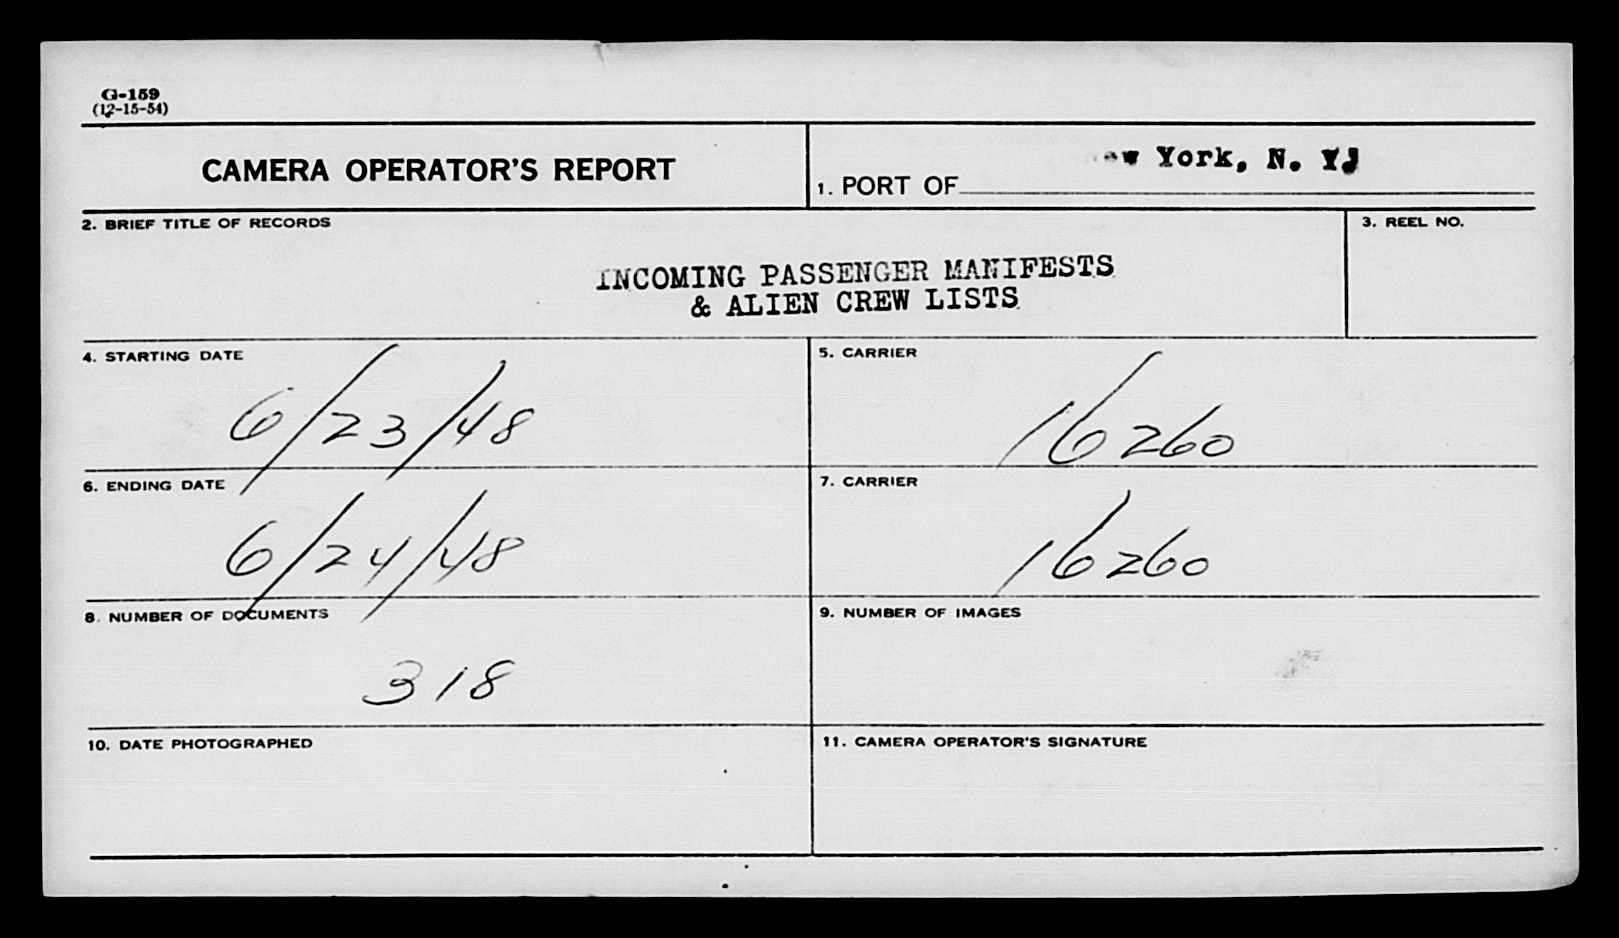 G-159
(12-15-54)
CAMERA OPERATOR'S REPORT
1. PORT OF York, N. Y.
2. BRIEF TITLE OF RECORDS
3. REEL NO.
INCOMING PASSENGER MANIFESTS
& ALIEN CREW LISTS
4. STARTING DATE
6/23/48
5. CARRIER
16260
6. ENDING DATE
6/24/48
7. CARRIER
16260
8. NUMBER OF DOCUMENTS
318
9. NUMBER OF IMAGES
10. DATE PHOTOGRAPHED
11. CAMERA OPERATOR'S SIGNATURE